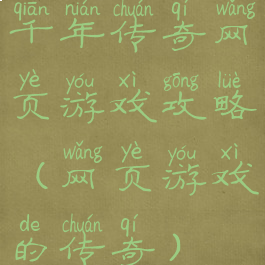 qiān nián chuán qí wǎng
千年传奇网
yè yóu xì gōng lüè
页游戏攻略
wǎng yè yóu xì
（网页游戏
de chuán qí
的传奇）